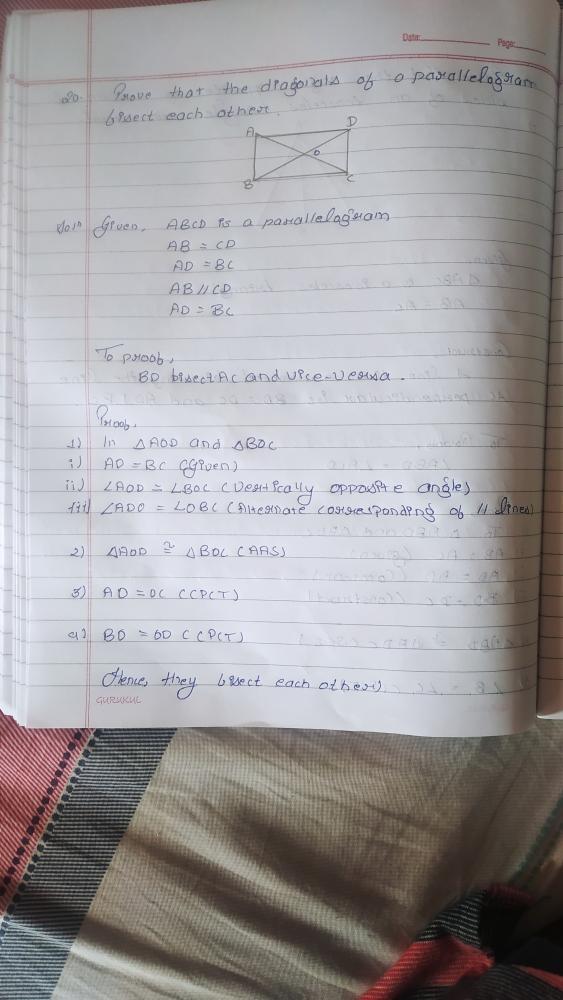 Date:
Page:
20. Prove that the diagonals of a parallelogram
bisect each other.
A
D
O
B
C
Soln Given, ABCD is a parallelogram
AB = CD
AD = BC
AB // CD
AD = BC
To proob,
BD bisect AC and vice-versa.
Proob,
1) In △AOD and △BOC
i) AD = BC (Given)
ii) ∠AOD = ∠BOC (Vertically opposite angles)
iii) ∠ADO = ∠OBC (Alternate corresponding of // lines)
2) △AOD ≅ △BOC (AAS)
3) AO = OC (CPCT)
4) BO = OD (CPCT)
Hence, they bisect each other)
GURUKUL